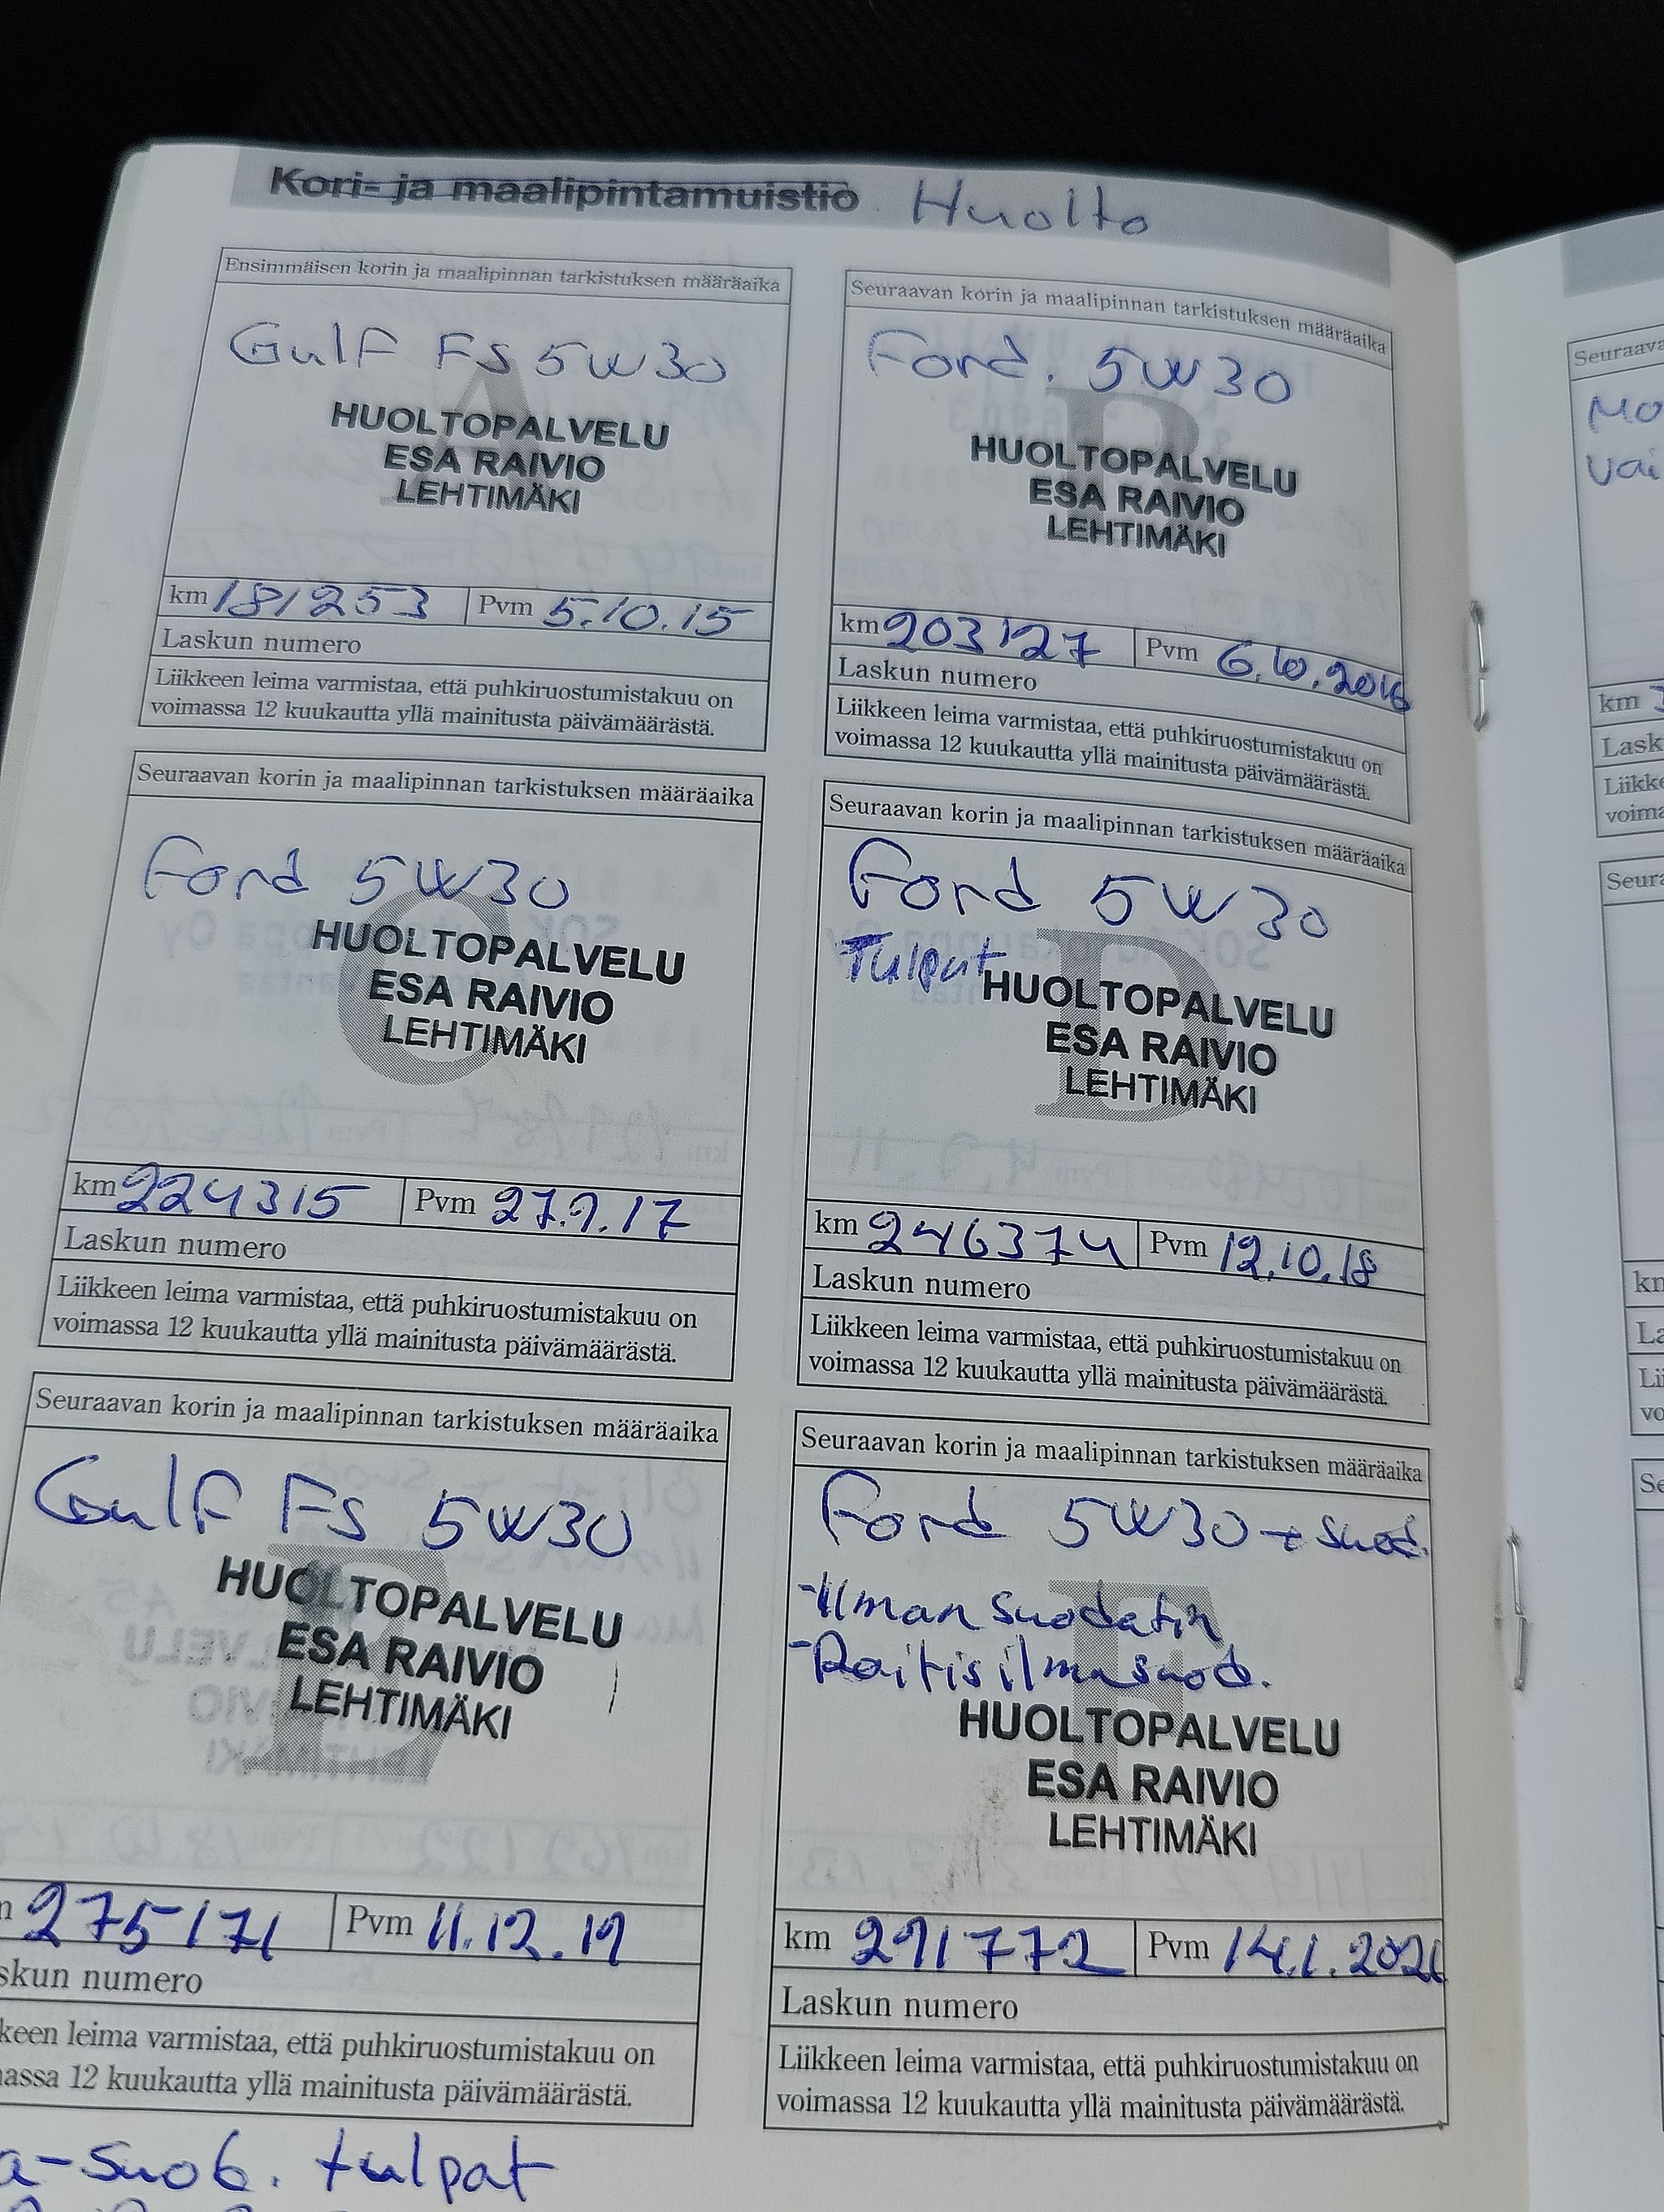 Kori- ja maalipintamuistio Huolto
Ensimmäisen korin ja maalipinnan tarkistuksen määräaika
Gulf FS 5W30
HUOLTOPALVELU
ESA RAIVIO
LEHTIMÄKI
km 181253 Pvm 5.10.15
Laskun numero
Liikkeen leima varmistaa, että puhkiruostumistakuu on
voimassa 12 kuukautta yllä mainitusta päivämäärästä.
Seuraavan korin ja maalipinnan tarkistuksen määräaika
Ford. 5W30
HUOLTOPALVELU
ESA RAIVIO
LEHTIMÄKI
km 203127 Pvm 6.10.2016
Laskun numero
Liikkeen leima varmistaa, että puhkiruostumistakuu on
voimassa 12 kuukautta yllä mainitusta päivämäärästä.
Seuraavan korin ja maalipinnan tarkistuksen määräaika
Ford 5W30
C
HUOLTOPALVELU
ESA RAIVIO
LEHTIMÄKI
km 224315 Pvm 27.9.17
Laskun numero
Liikkeen leima varmistaa, että puhkiruostumistakuu on
voimassa 12 kuukautta yllä mainitusta päivämäärästä.
Seuraavan korin ja maalipinnan tarkistuksen määräaika
Ford 5W30
Tulpat
D
HUOLTOPALVELU
ESA RAIVIO
LEHTIMÄKI
km 246374 Pvm 12.10.18
Laskun numero
Liikkeen leima varmistaa, että puhkiruostumistakuu on
voimassa 12 kuukautta yllä mainitusta päivämäärästä.
Seuraavan korin ja maalipinnan tarkistuksen määräaika
Gulf FS 5W30
E
HUOLTOPALVELU
ESA RAIVIO
LEHTIMÄKI
275171 Pvm 11.12.19
skun numero
keen leima varmistaa, että puhkiruostumistakuu on
massa 12 kuukautta yllä mainitusta päivämäärästä.
Seuraavan korin ja maalipinnan tarkistuksen määräaika
Ford 5W30 + suod.
-Ilman suodatin
-Raitisilmasuod.
F
HUOLTOPALVELU
ESA RAIVIO
LEHTIMÄKI
km 291772 Pvm 14.1.202
Laskun numero
Liikkeen leima varmistaa, että puhkiruostumistakuu on
voimassa 12 kuukautta yllä mainitusta päivämäärästä.
a-suod. tulpat
Seuraava
Mo
vai
km 3
Lask
Liikke
voima
Seura
km
La
Lii
vo
Se